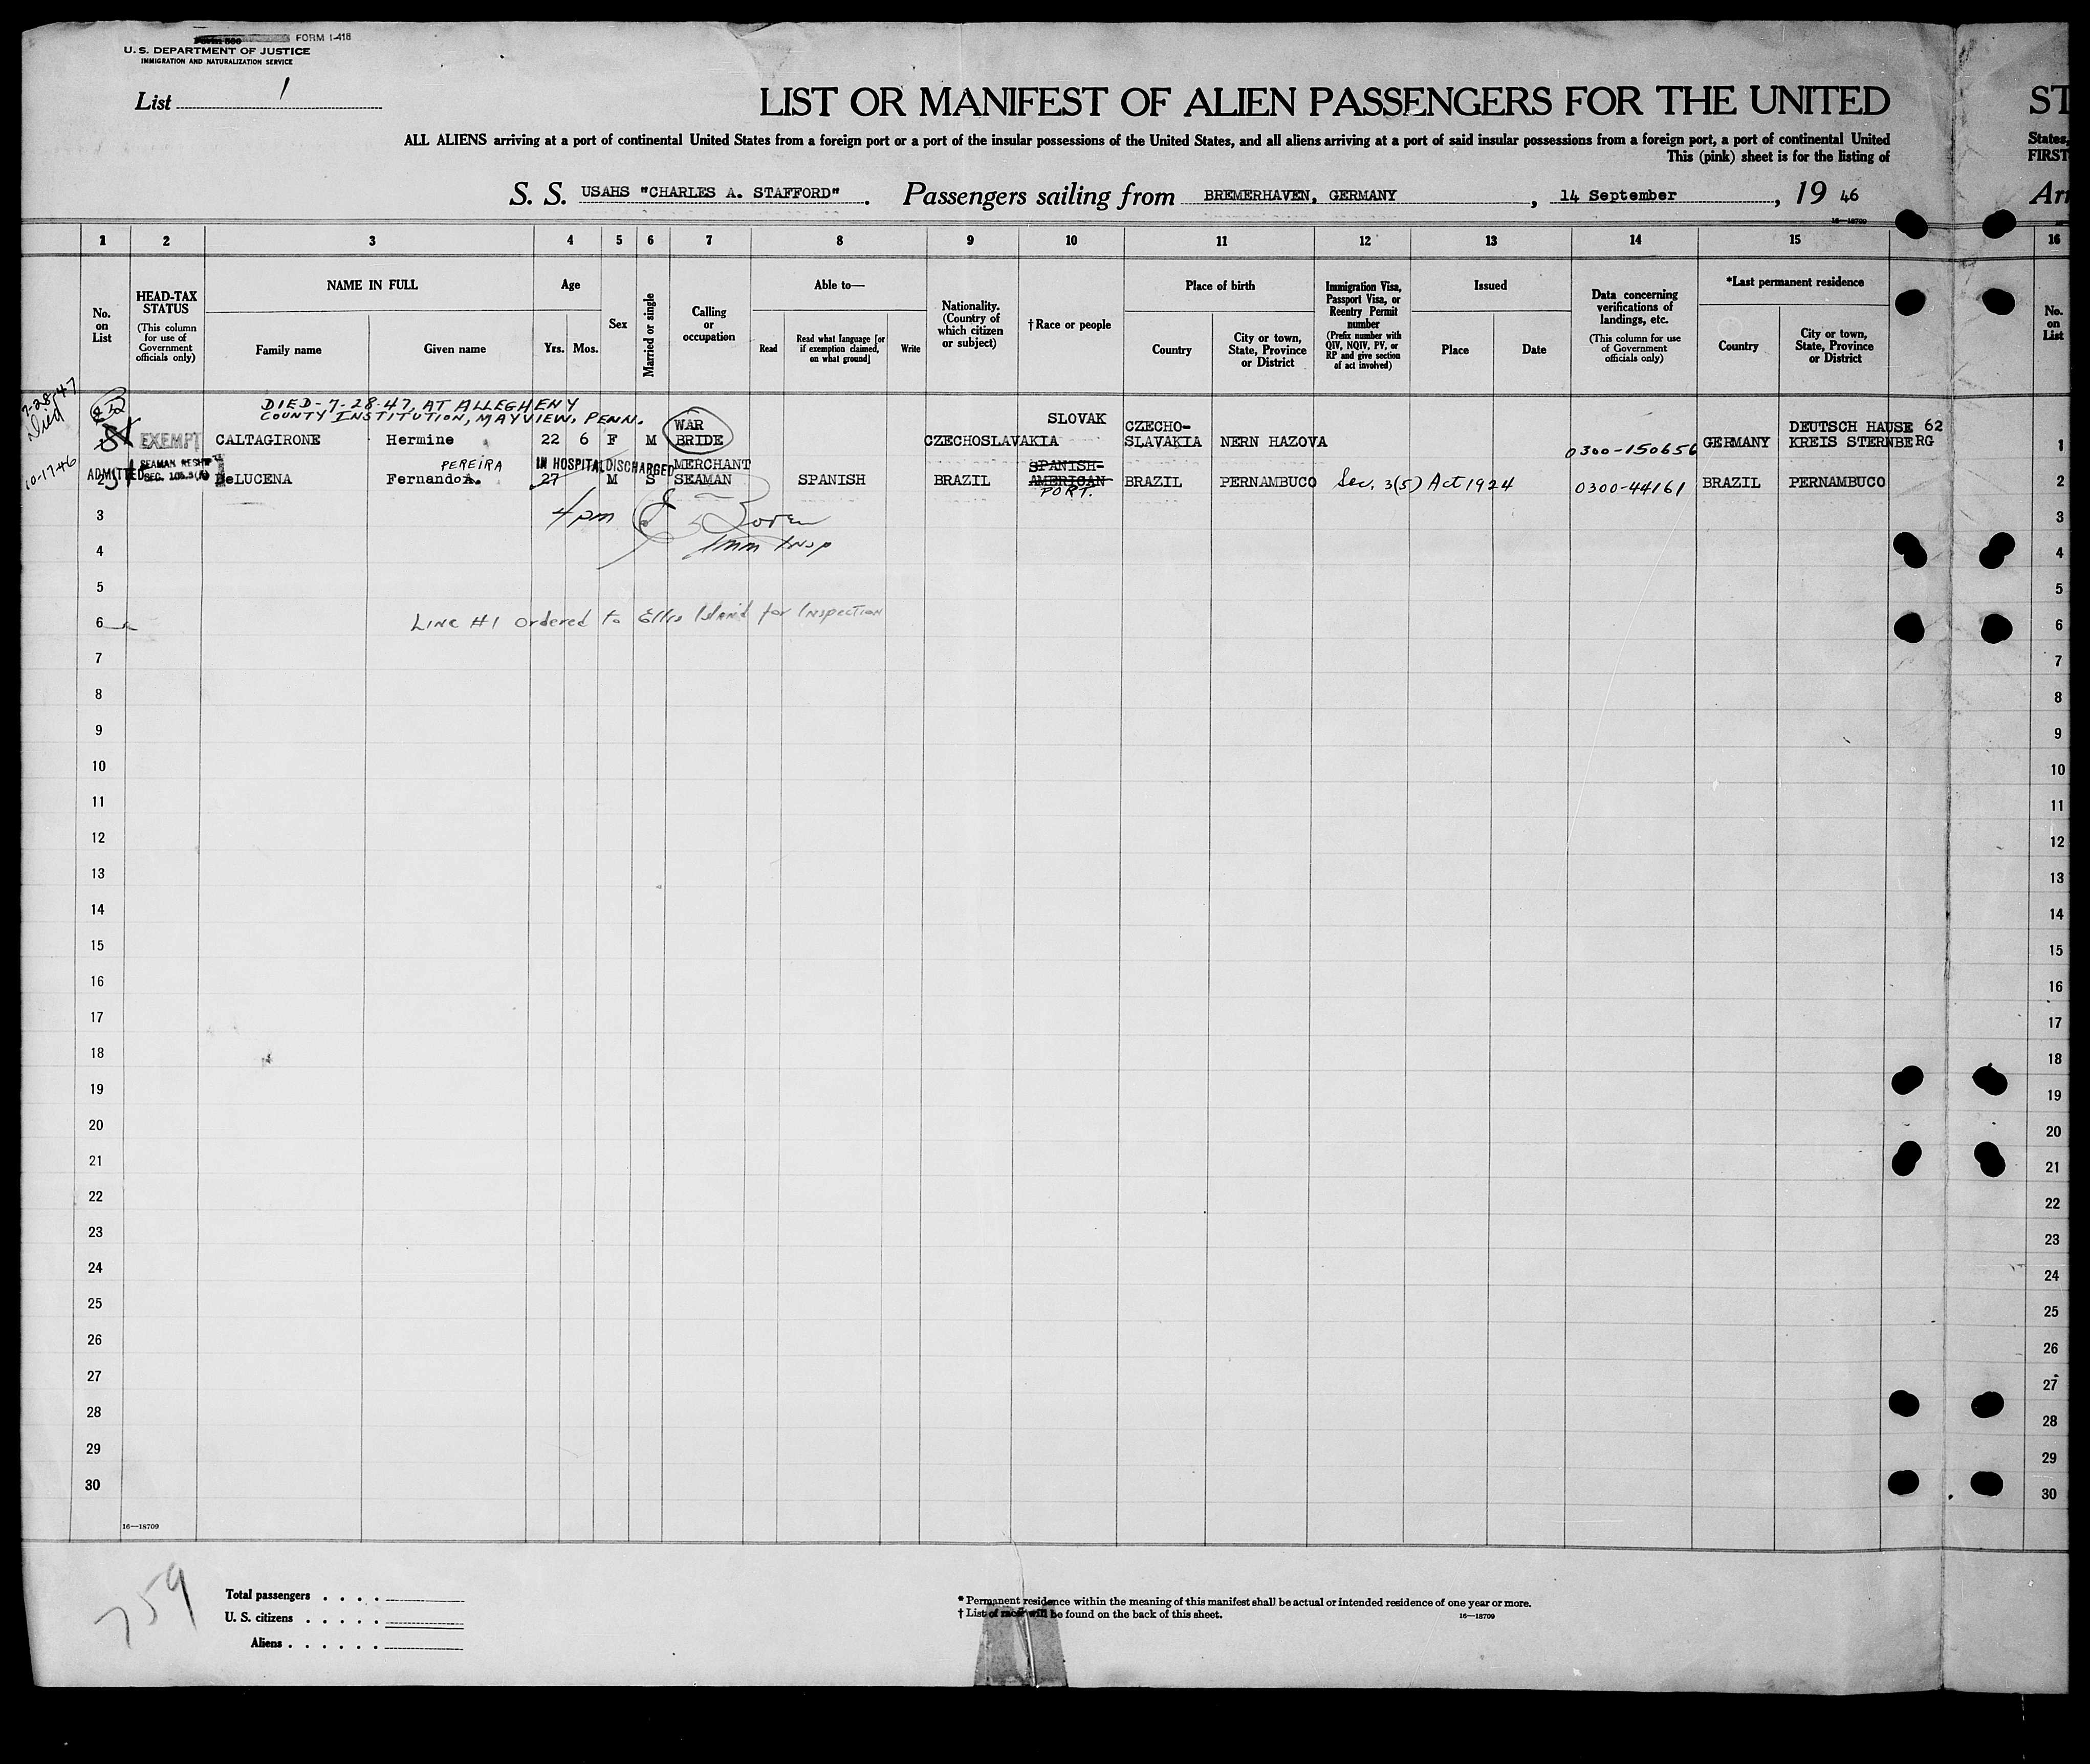 FORM I-418
U. S. DEPARTMENT OF JUSTICE
IMMIGRATION AND NATURALIZATION SERVICE
List 1
LIST OR MANIFEST OF ALIEN PASSENGERS FOR THE UNITED ST
ALL ALIENS arriving at a port of continental United States from a foreign port or a port of the insular possessions of the United States, and all aliens arriving at a port of said insular possessions from a foreign port, a port of continental United States,
This (pink) sheet is for the listing of FIRST
S. S. USAHS "CHARLES A. STAFFORD". Passengers sailing from BREMERHAVEN, GERMANY, 14 September, 19 46 Arr
16—18709
1 2 3 4 5 6 7 8 9 10 11 12 13 14 15 16
No. on List
HEAD-TAX STATUS (This column for use of Government officials only)
NAME IN FULL
Family name
Given name
Age
Yrs. Mos.
Sex
Married or single
Calling or occupation
Able to—
Read
Read what language [or if exemption claimed, on what ground]
Write
Nationality. (Country of which citizen or subject)
†Race or people
Place of birth
Country
City or town, State, Province or District
Immigration Visa, Passport Visa, or Reentry Permit number (Prefix number with QIV, NQIV, PV, or RP and give section of act involved)
Issued
Place
Date
Data concerning verifications of landings, etc. (This column for use of Government officials only)
*Last permanent residence
Country
City or town, State, Province or District
No. on List
7-28-47
Died
DIED-7-28-47, AT ALLEGHENY
COUNTY INSTITUTION, MAYVIEW, PENN.
SLOVAK
EXEMPT CALTAGIRONE Hermine 22 6 F M WAR BRIDE CZECHOSLAVAKIA CZECHO-SLAVAKIA NERN HAZOVA 0300-150656 GERMANY DEUTSCH HAUSE 62 KREIS STERNBERG 1
10-17-46
ADMITTED
SEAMAN RESHIP
PEREIRA
IN HOSPITAL DISCHARGED
DeLUCENA Fernando A. 27 M S MERCHANT SEAMAN SPANISH BRAZIL SPANISH-AMERICAN PORT. BRAZIL PERNAMBUCO Sec. 3(5) Act 1924 0300-44161 BRAZIL PERNAMBUCO 2
3 3
4 pm
Imm Insp
4 4
5 5
6 Line #1 ordered to Ellis Island for Inspection 6
7 7
8 8
9 9
10 10
11 11
12 12
13 13
14 14
15 15
16 16
17 17
18 18
19 19
20 20
21 21
22 22
23 23
24 24
25 25
26 26
27 27
28 28
29 29
30 30
16—18709
759
Total passengers . . . .
U. S. citizens . . . . .
Aliens . . . . . .
* Permanent residence within the meaning of this manifest shall be actual or intended residence of one year or more.
† List of races will be found on the back of this sheet.
16—18709